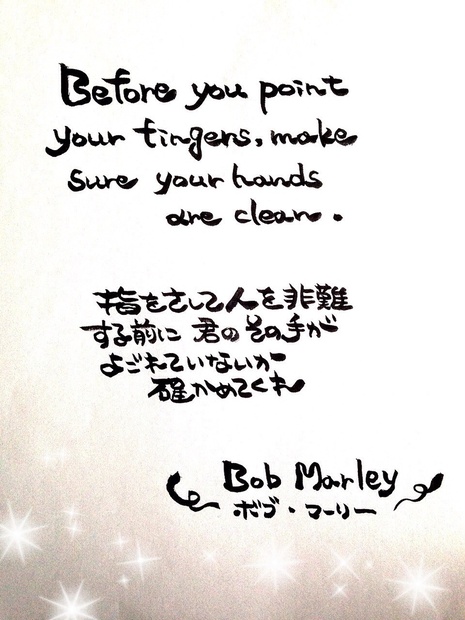 Before you point
your fingers, make
sure your hands
are clean.
指をさして人を非難
する前に 君のその手が
よごれていないか
確かめてくれ
Bob Marley
ボブ・マーリー